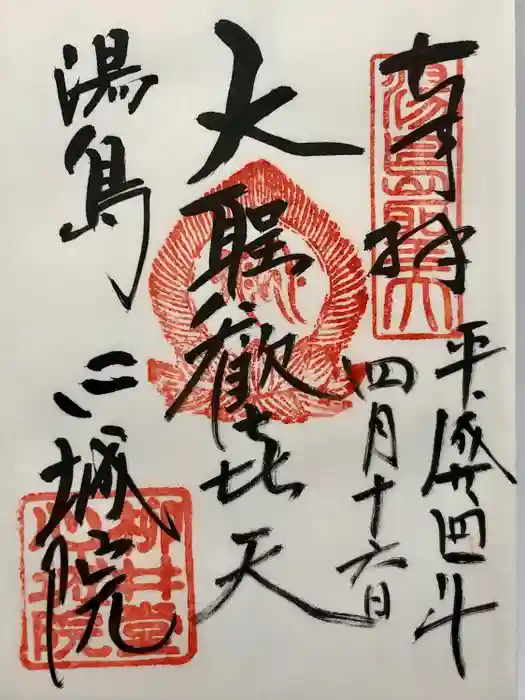 奉拝
平成廿四年
四月十六日
大聖歓喜天
湯島 心城院
湯島聖天
柳井堂
心城院